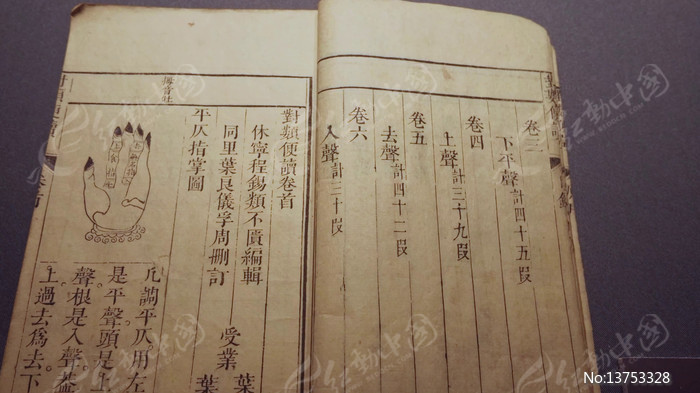 卷三
下平聲計四十五段
卷四
上聲計三十九段
卷五
去聲計四十二段
卷六
入聲計三十段
對類便讀卷首
休寧程錫類不匱編輯
同里葉良儀孚周刪訂
受業葉
葉
平仄指掌圖
凡調平仄用左
是平聲頭是上
聲根是入聲葢
上過去爲去下
紅動中國
No:13753328